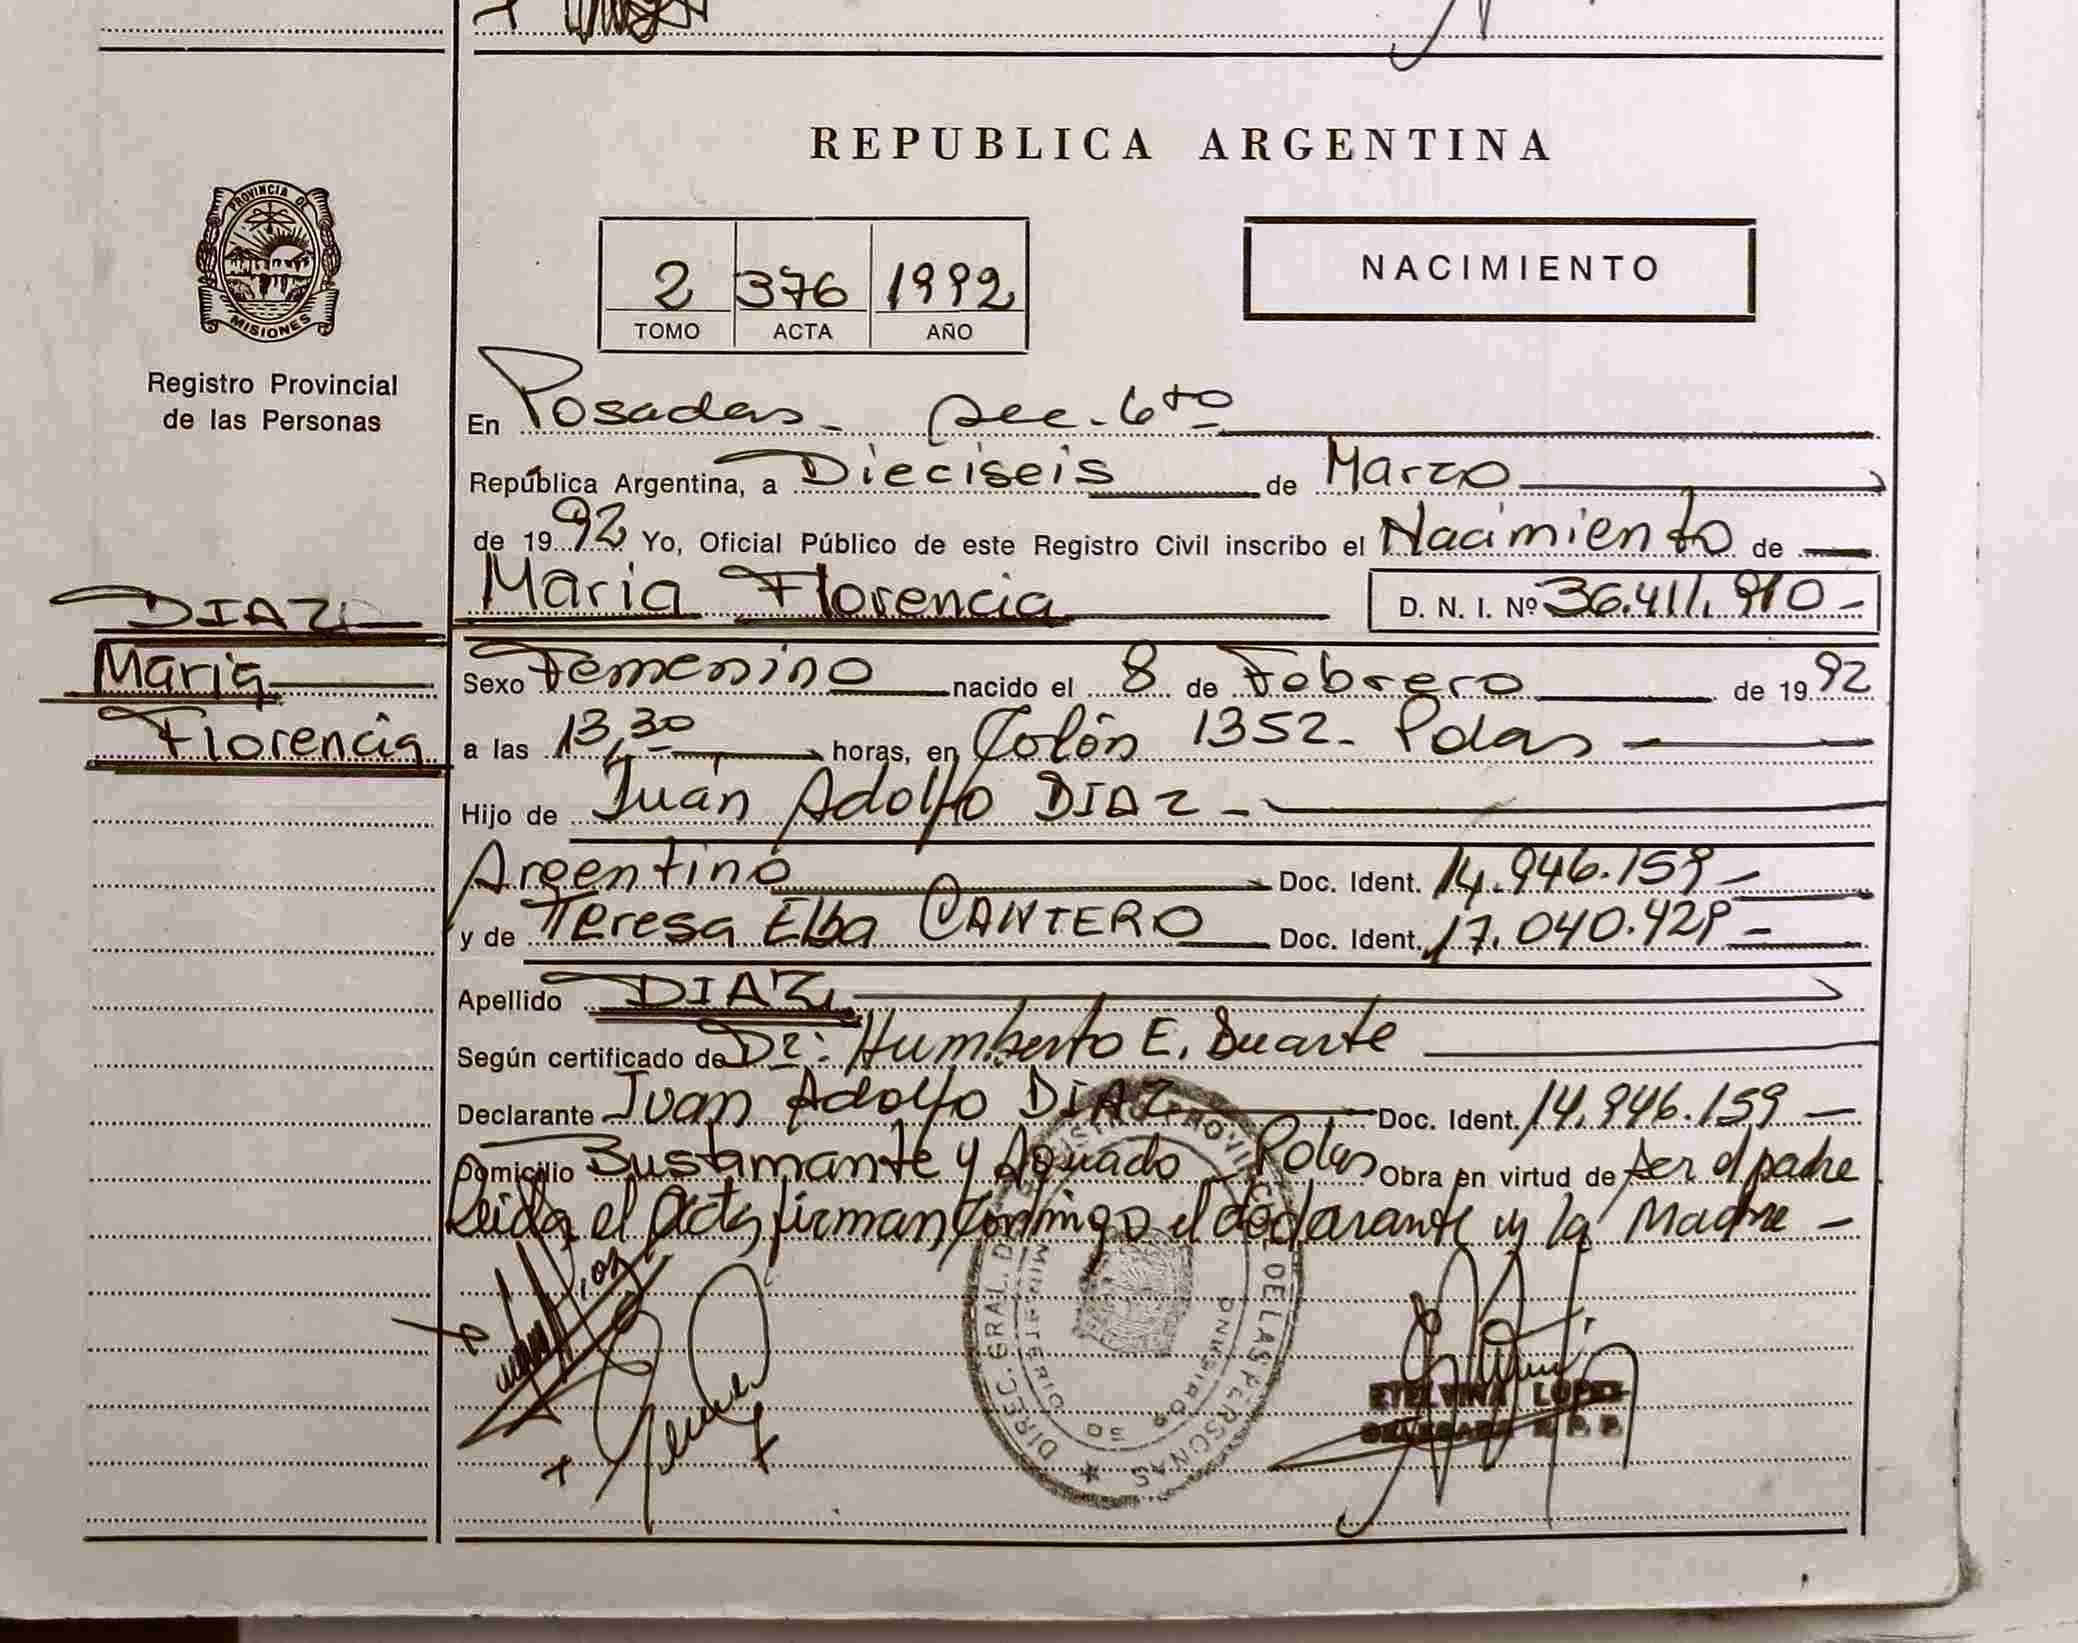 REPUBLICA ARGENTINA
PROVINCIA DE
MISIONES
Registro Provincial
de las Personas
2 376 1992
TOMO ACTA AÑO
NACIMIENTO
En Posadas - sec. 6to
República Argentina, a Dieciseis de Marzo
de 1992 Yo, Oficial Público de este Registro Civil inscribo el Nacimiento de
Maria Florencia D. N. I. Nº 36.411.910-
DIAZ
Maria
Florencia
Sexo Femenino nacido el 8 de Febrero de 1992
a las 13,30 horas, en Colón 1352- Pdas
Hijo de Juan Adolfo DIAZ -
Argentino Doc. Ident. 14.946.159-
y de Teresa Elba CANTERO Doc. Ident. 17.040.429-
Apellido DIAZ
Según certificado de Dr: Humberto E. Duarte
Declarante Juan Adolfo DIAZ Doc. Ident. 14.946.159-
Domicilio Bustamante y Aguado Pdas Obra en virtud de ser el padre
Leida el Acta, firman conmigo el declarante y la Madre -
DIREC. GRAL. DEL REGISTRO PROVINCIAL DE LAS PERSONAS
MINISTERIO DE GOBIERNO
ETELVINA LOPEZ
DELEGADA R. P. P.